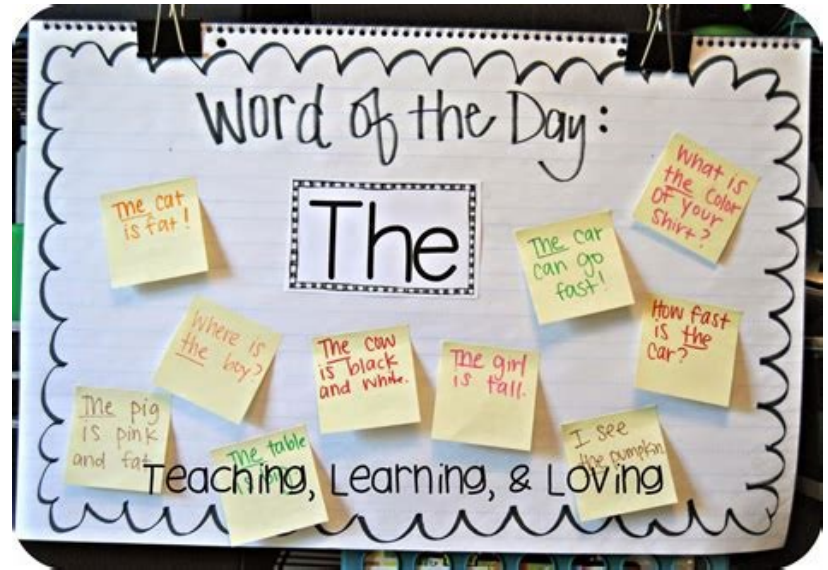 Word of the Day:
The
The cat
is fat!
What is
the color
of your
shirt?
The car
can go
fast!
Where is
the boy?
The cow
is black
and white.
The girl
is tall.
How fast
is the
car?
The pig
is pink
and fat.
The table
I see
the pumpkin
Teaching, Learning, & Loving